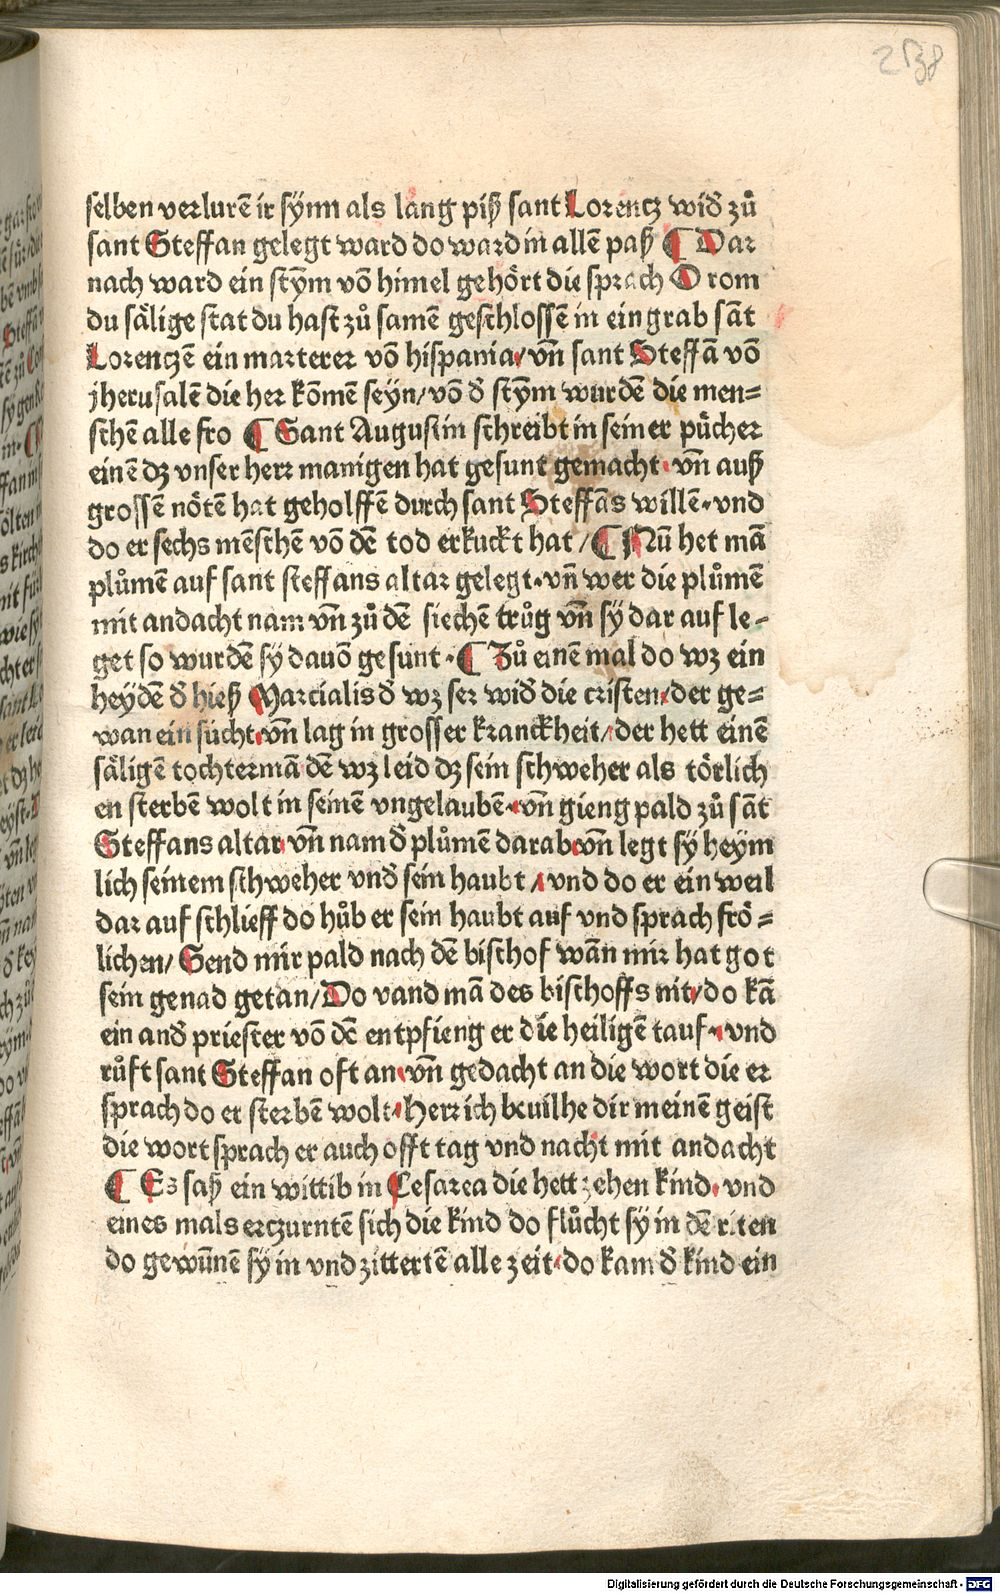 238
selben verlurē ir sÿnn als lang piß sant Lorencz wid̄ zů
sant Steffan gelegt ward do ward in allē paß ¶ Dar
nach ward ein stÿm vō himel gehört die sprach O rom
du sälige stat du hast zů samē geschlossē in ein grab sāt
Lorenczē ein marterer vō hispania/ vn̄ sant Steffā vō
jherusalē die her kōmē seyn/ vō d̄ stÿm wurdē die men=
schē alle fro ¶ Sant Augustin schreibt in seiner pücher
einē dz vnser herr manigen hat gesunt gemacht· vn̄ auß
grossē nötē hat geholffē durch sant Steffās willē· vnd
do er sechs mēschē vō dē tod erkuckt hat/ ¶ Nū het mā
plůmē auf sant steffans altar gelegt· vn̄ wer die plůmē
mit andacht nam vn̄ zů dē siechē trůg vn̄ sÿ dar auf le-
get so wurdē sÿ dauō gesunt· ¶ Zů einē mal do wz ein
heydē d̄ hieß Marcialis d̄ wz ser wid̄ die cristen/ der ge=
wan ein sücht· vn̄ lag in grosser kranckheit/ der hett einē
säligē tochtermā dē wz leid dz sein schweher als törlich
en sterbē wolt in seinē vngelaubē· vn̄ gieng pald zů sāt
Steffans altar· vn̄ nam d̄ plůmē darab· vn̄ legt sÿ heym
lich seinem schweher vnd̄ sein haubt/ vnd do er ein weil
dar auf schlieff do hůb er sein haubt auf vnd sprach frö=
lichen/ Send mir pald nach dē bischof wān mir hat got
sein genad getan/ Do vand mā des bischoffs nit/ do kā
ein and̄ priester vō dē entpfieng er die heiligē tauf· vnd
růft sant Steffan oft an· vn̄ gedacht an die wort die er
sprach do er sterbē wolt· Herr ich beuilhe dir meinē geist
die wort sprach er auch offt tag vnd nacht mit andacht
¶ Ez saß ein wittib in Cesarea die hett zehen kind· vnd
eines mals erczurntē sich die kind do flůcht sÿ in dē riten
do gewūnē sÿ in vnd zittertē alle zeit· do kam d̄ kind ein
Digitalisierung gefördert durch die Deutsche Forschungsgemeinschaft - DFG